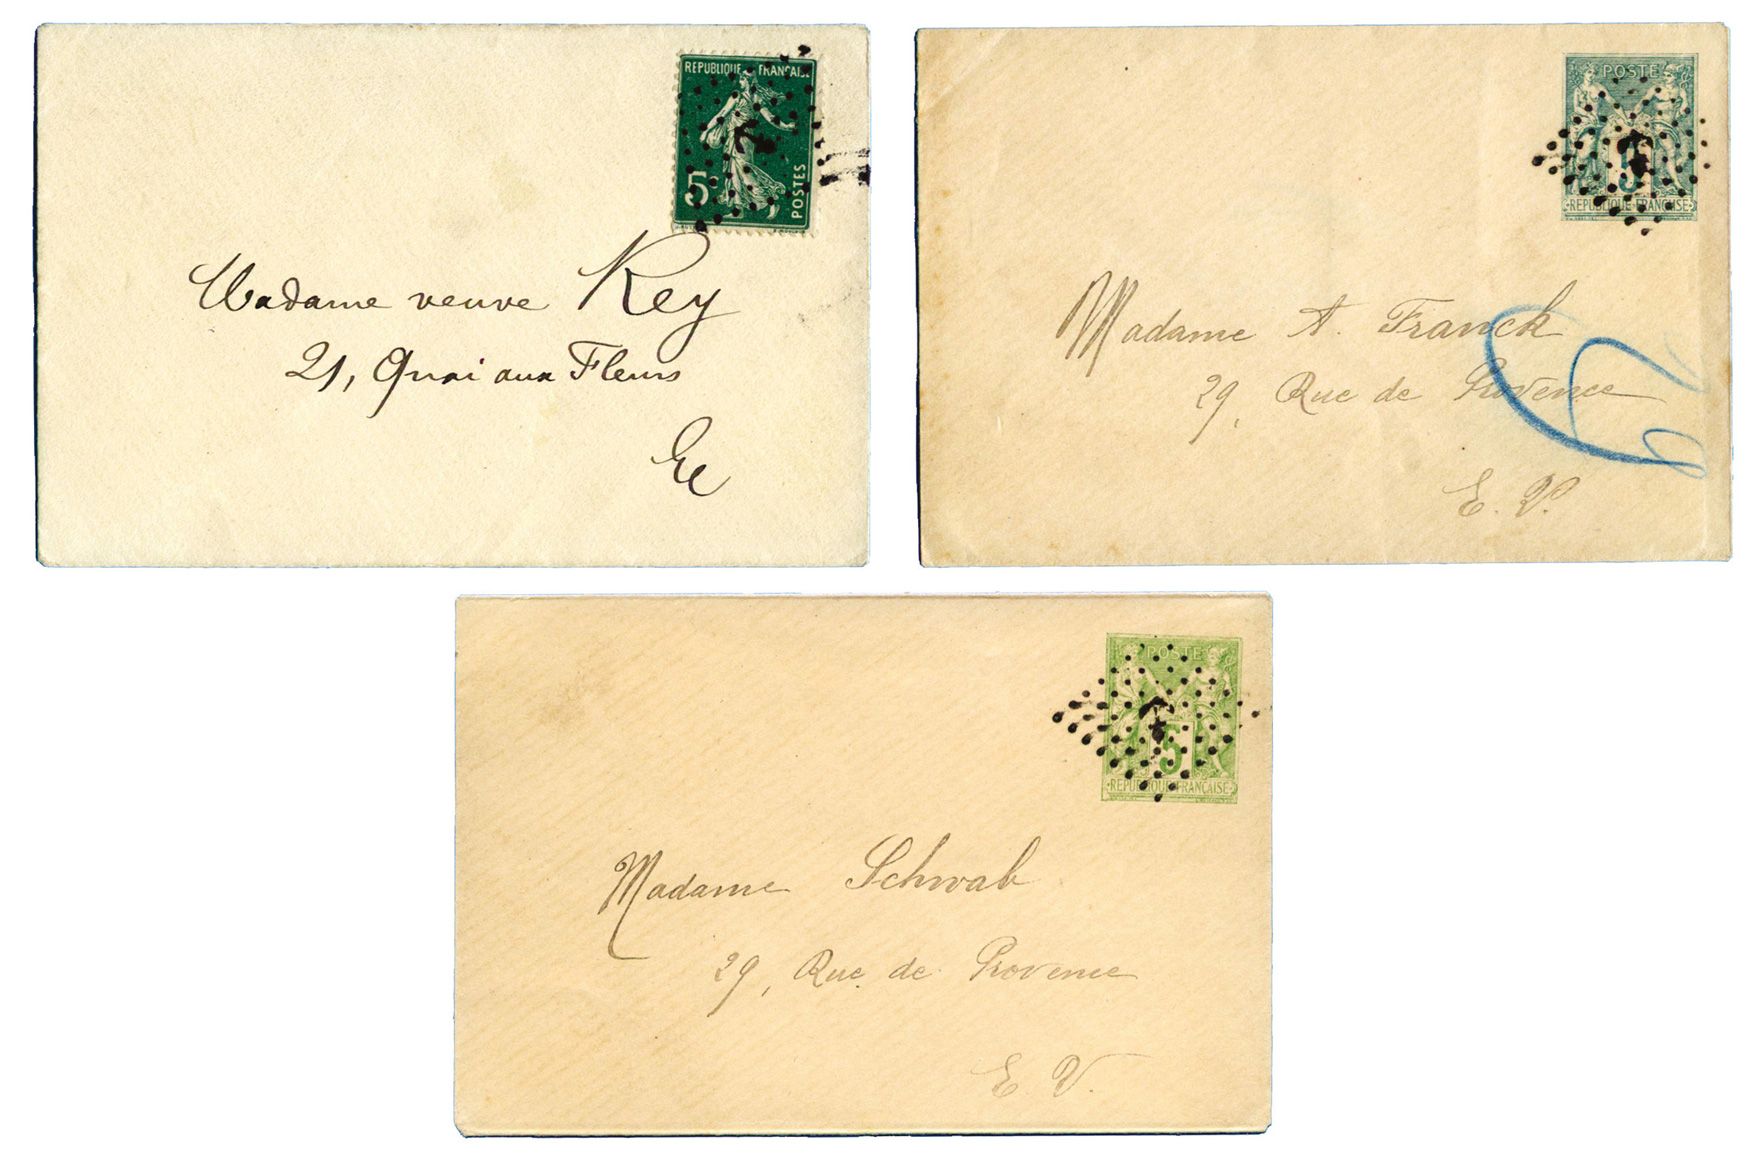 REPUBLIQUE FRANÇAISE
5c
POSTES
Madame veuve Rey
21, Quai aux Fleurs
POSTE
5
REPUBLIQUE FRANÇAISE
Madame A. Franck
29, Rue de Provence
E. V.
POSTE
5
REPUBLIQUE FRANÇAISE
Madame Schwab
29, Rue de Provence
E V.